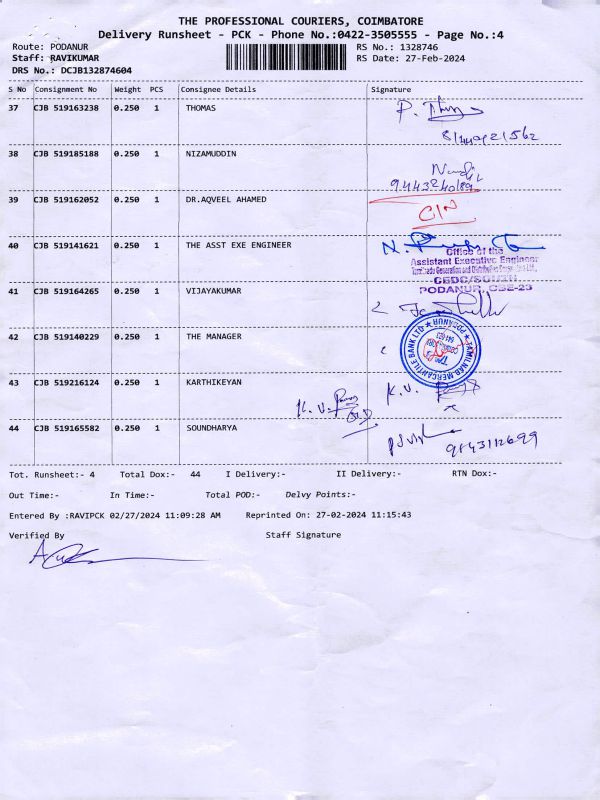 THE PROFESSIONAL COURIERS, COIMBATORE
Delivery Runsheet - PCK - Phone No.:0422-3505555 - Page No.:4
Route: PODANUR RS No.: 1328746
Staff: RAVIKUMAR RS Date: 27-Feb-2024
DRS No.: DCJB132874604
S No Consignment No Weight PCS Consignee Details Signature
37 CJB 519163238 0.250 1 THOMAS
38 CJB 519185188 0.250 1 NIZAMUDDIN
39 CJB 519162052 0.250 1 DR.AQVEEL AHAMED
C/N
40 CJB 519141621 0.250 1 THE ASST EXE ENGINEER
Office of the
Assistant Executive Engineer
Tamilnadu Generation and Distribution Corporation Ltd.,
CEDC/SOUTH
PODANUR, CBE-23
41 CJB 519164265 0.250 1 VIJAYAKUMAR
42 CJB 519140229 0.250 1 THE MANAGER
TAMILNAD MERCANTILE BANK LTD
PODANUR
43 CJB 519216124 0.250 1 KARTHIKEYAN
K. V.
K. V.
44 CJB 519165582 0.250 1 SOUNDHARYA
9843112699
Tot. Runsheet:- 4 Total Dox:- 44 I Delivery:- II Delivery:- RTN Dox:-
Out Time:- In Time:- Total POD:- Delvy Points:-
Entered By :RAVIPCK 02/27/2024 11:09:28 AM Reprinted On: 27-02-2024 11:15:43
Verified By Staff Signature